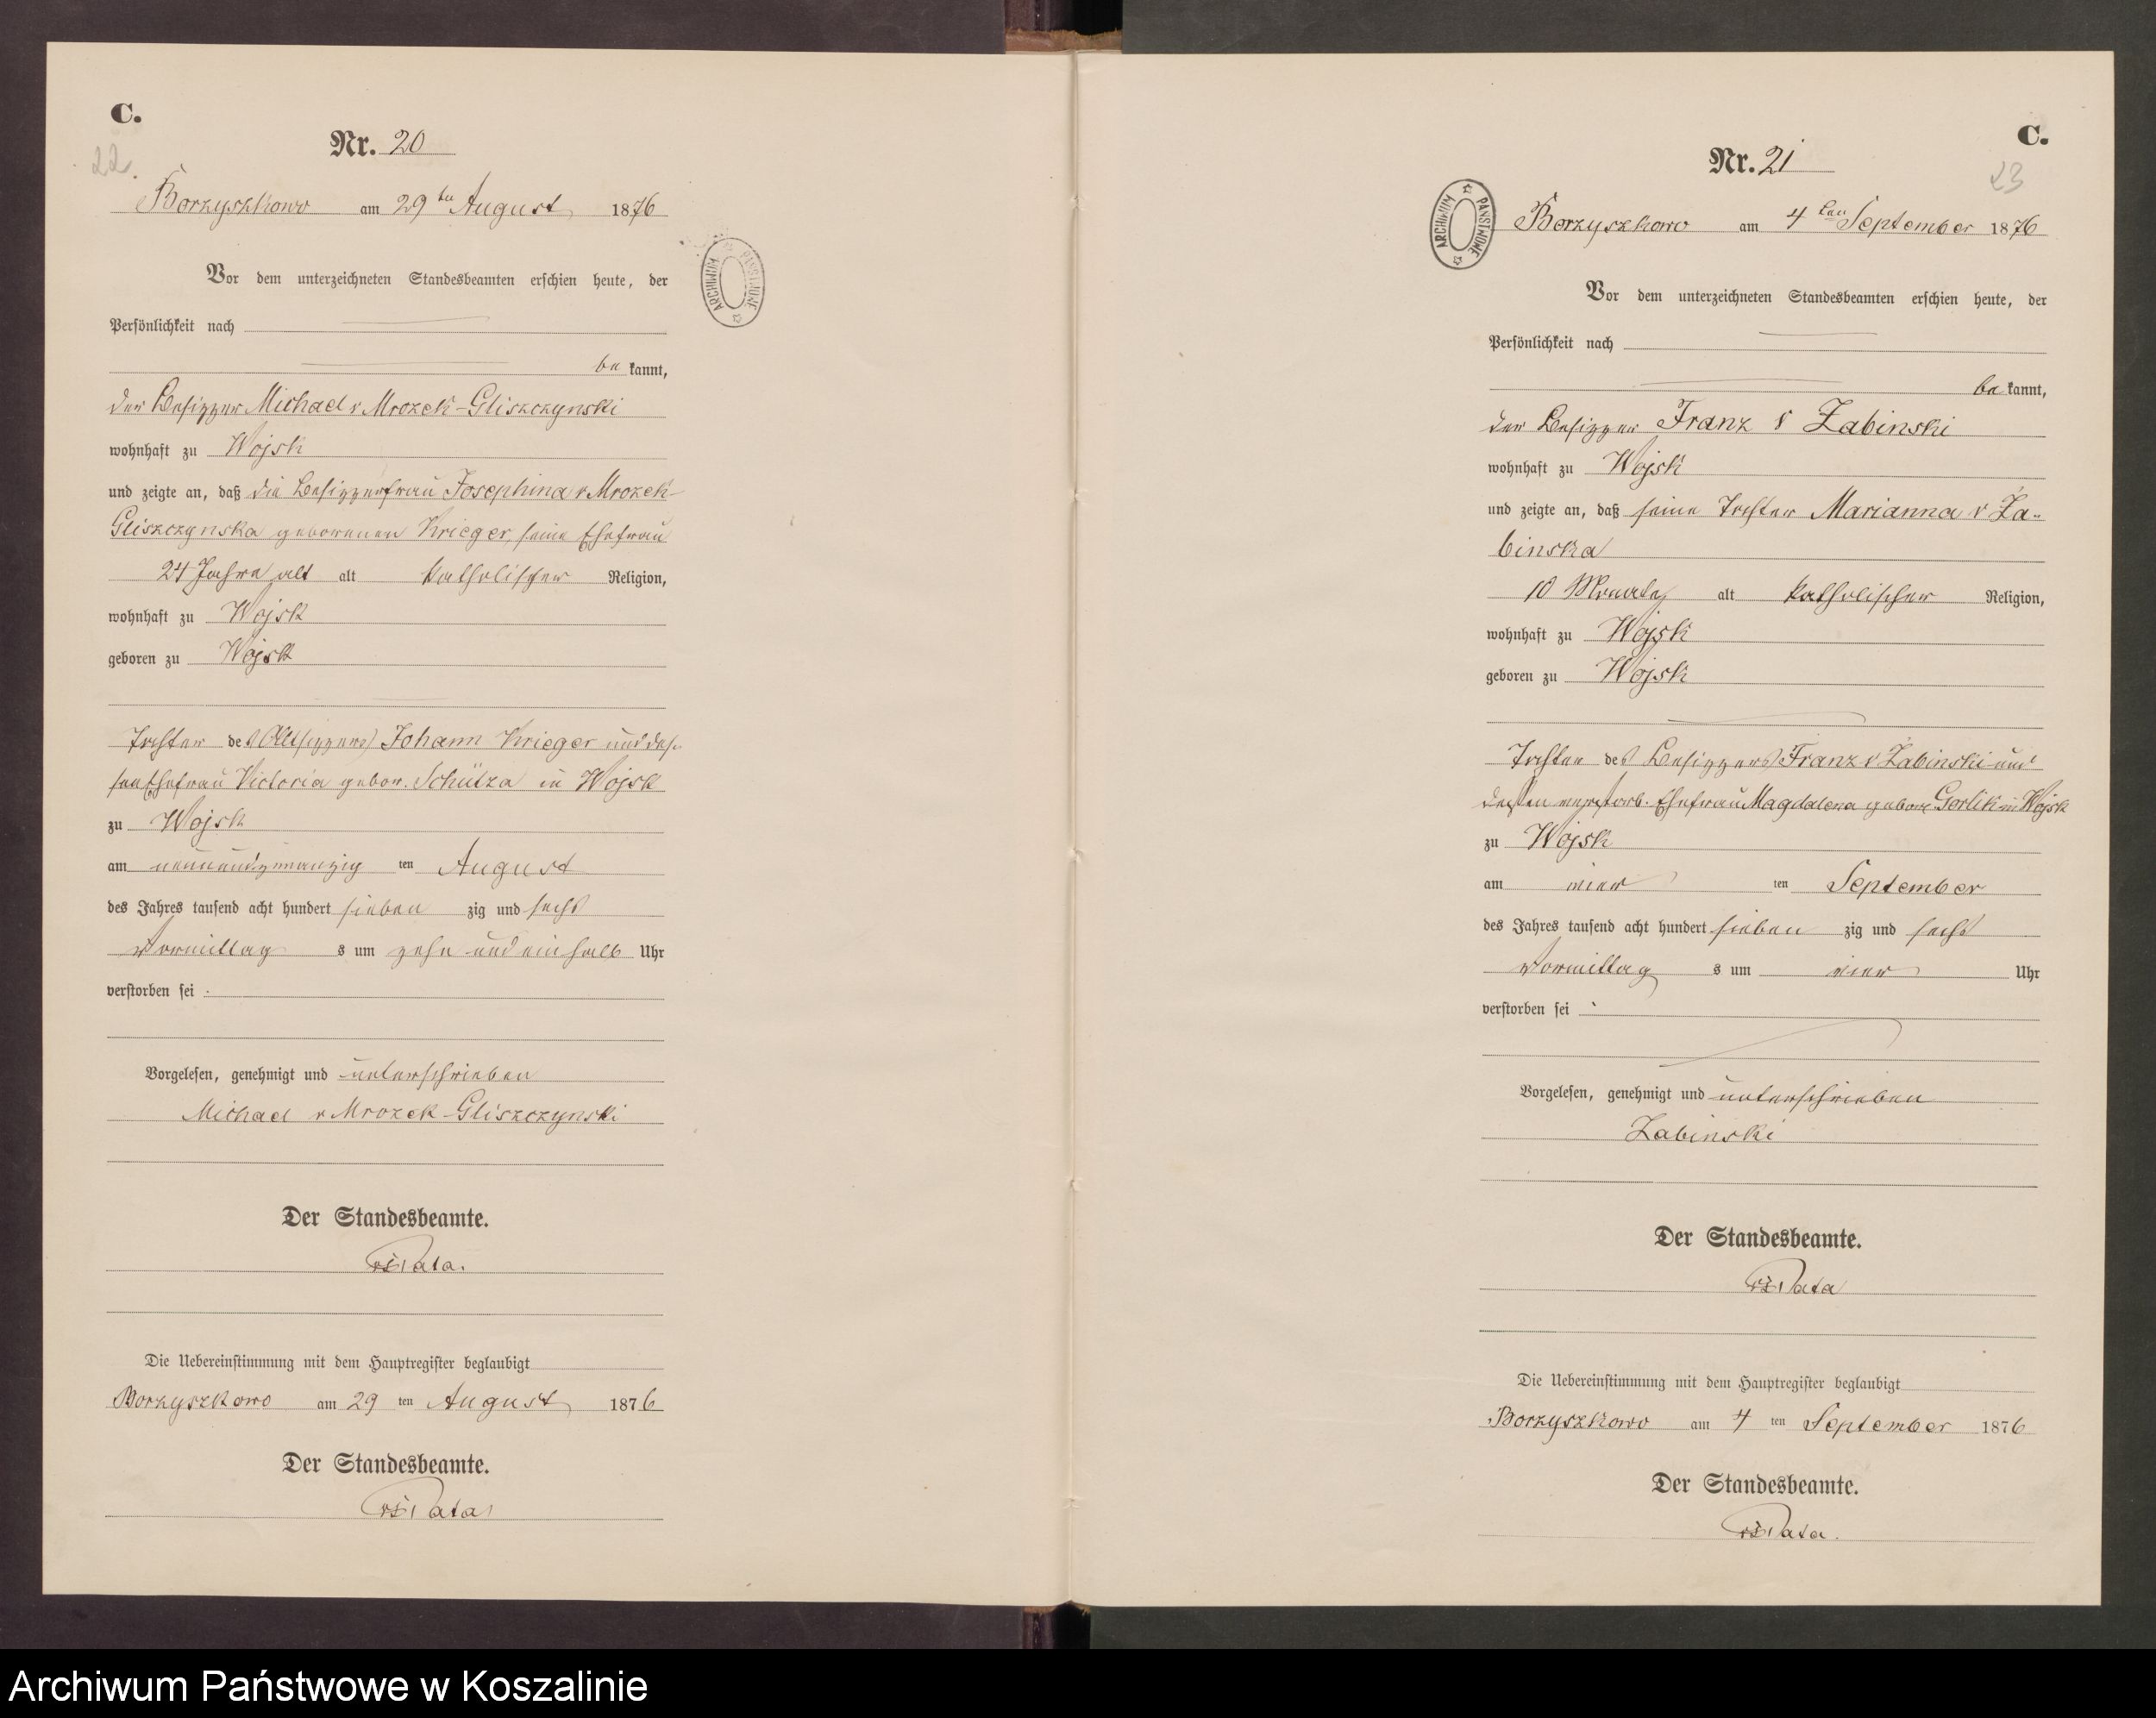 C.
22.
Nr. 20
Borzyszkowo am 29ten August 1876
Vor dem unterzeichneten Standesbeamten erschien heute, der
Persönlichkeit nach
be kannt,
der Besitzer Michael v Mrozek-Gliszczynski
wohnhaft zu Wojsk
und zeigte an, daß die Besitzerfrau Josephina v Mrozek-
Gliszczynska geborenen Krieger, seine Ehefrau
24 Jahre alt alt katholischer Religion,
wohnhaft zu Wojsk
geboren zu Wojsk
Tochter des Altsitzers Johann Krieger und des-
sen Ehefrau Victoria gebor. Schütza in Wojsk
zu Wojsk
am neunundzwanzig ten August
des Jahres tausend acht hundert sieben zig und sechs
Vormittag s um zehn und ein halb Uhr
verstorben sei
Vorgelesen, genehmigt und unterschrieben
Michael v Mrozek Gliszczynski
Der Standesbeamte.
Pata.
Die Uebereinstimmung mit dem Hauptregister beglaubigt
Borzyszkowo am 29 ten August 1876
Der Standesbeamte.
Pata
ARCHIWUM PAŃSTWOWE
C.
23
Nr. 21
ARCHIWUM PAŃSTWOWE
Borzyszkowo am 4ten September 1876
Vor dem unterzeichneten Standesbeamten erschien heute, der
Persönlichkeit nach
be kannt,
der Besitzer Franz v Zabinski
wohnhaft zu Wojsk
und zeigte an, daß seine Tochter Marianna v Za-
binska
10 Monate alt katholischer Religion,
wohnhaft zu Wojsk
geboren zu Wojsk
Tochter des Besitzers Franz v Zabinski und
dessen verstorb. Ehefrau Magdalena gebore Gorlik in Wojsk
zu Wojsk
am vier ten September
des Jahres tausend acht hundert sieben zig und sechs
Vormittag s um vier Uhr
verstorben sei
Vorgelesen, genehmigt und unterschrieben
Zabinski
Der Standesbeamte.
Pata
Die Uebereinstimmung mit dem Hauptregister beglaubigt
Borzyszkowo am 4 ten September 1876
Der Standesbeamte.
Pata.
Archiwum Państwowe w Koszalinie